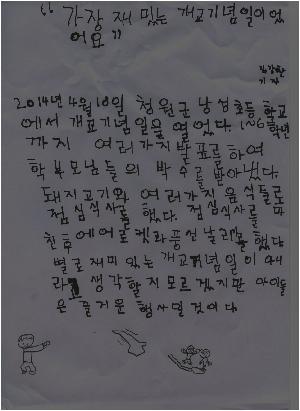 “가장 재밌는 개교기념일이었
어요”
기자
2014년 4월 18일 청원군 낭성초등학교
에서 개교기념일을 열었다. 1~6학년
까지 여러가지 발표를 하여
학부모님들의 박수를 받아냈다.
돼지고기와 여러가지 음식들로
점심식사를 했다. 점심식사를 마
친 후 에어로켓과 풍선 날리기를 했다
별로 재미있는 개교기념일이
라고 생각할지 모르겠지만 아이들
은 즐거운 행사일 것이다.